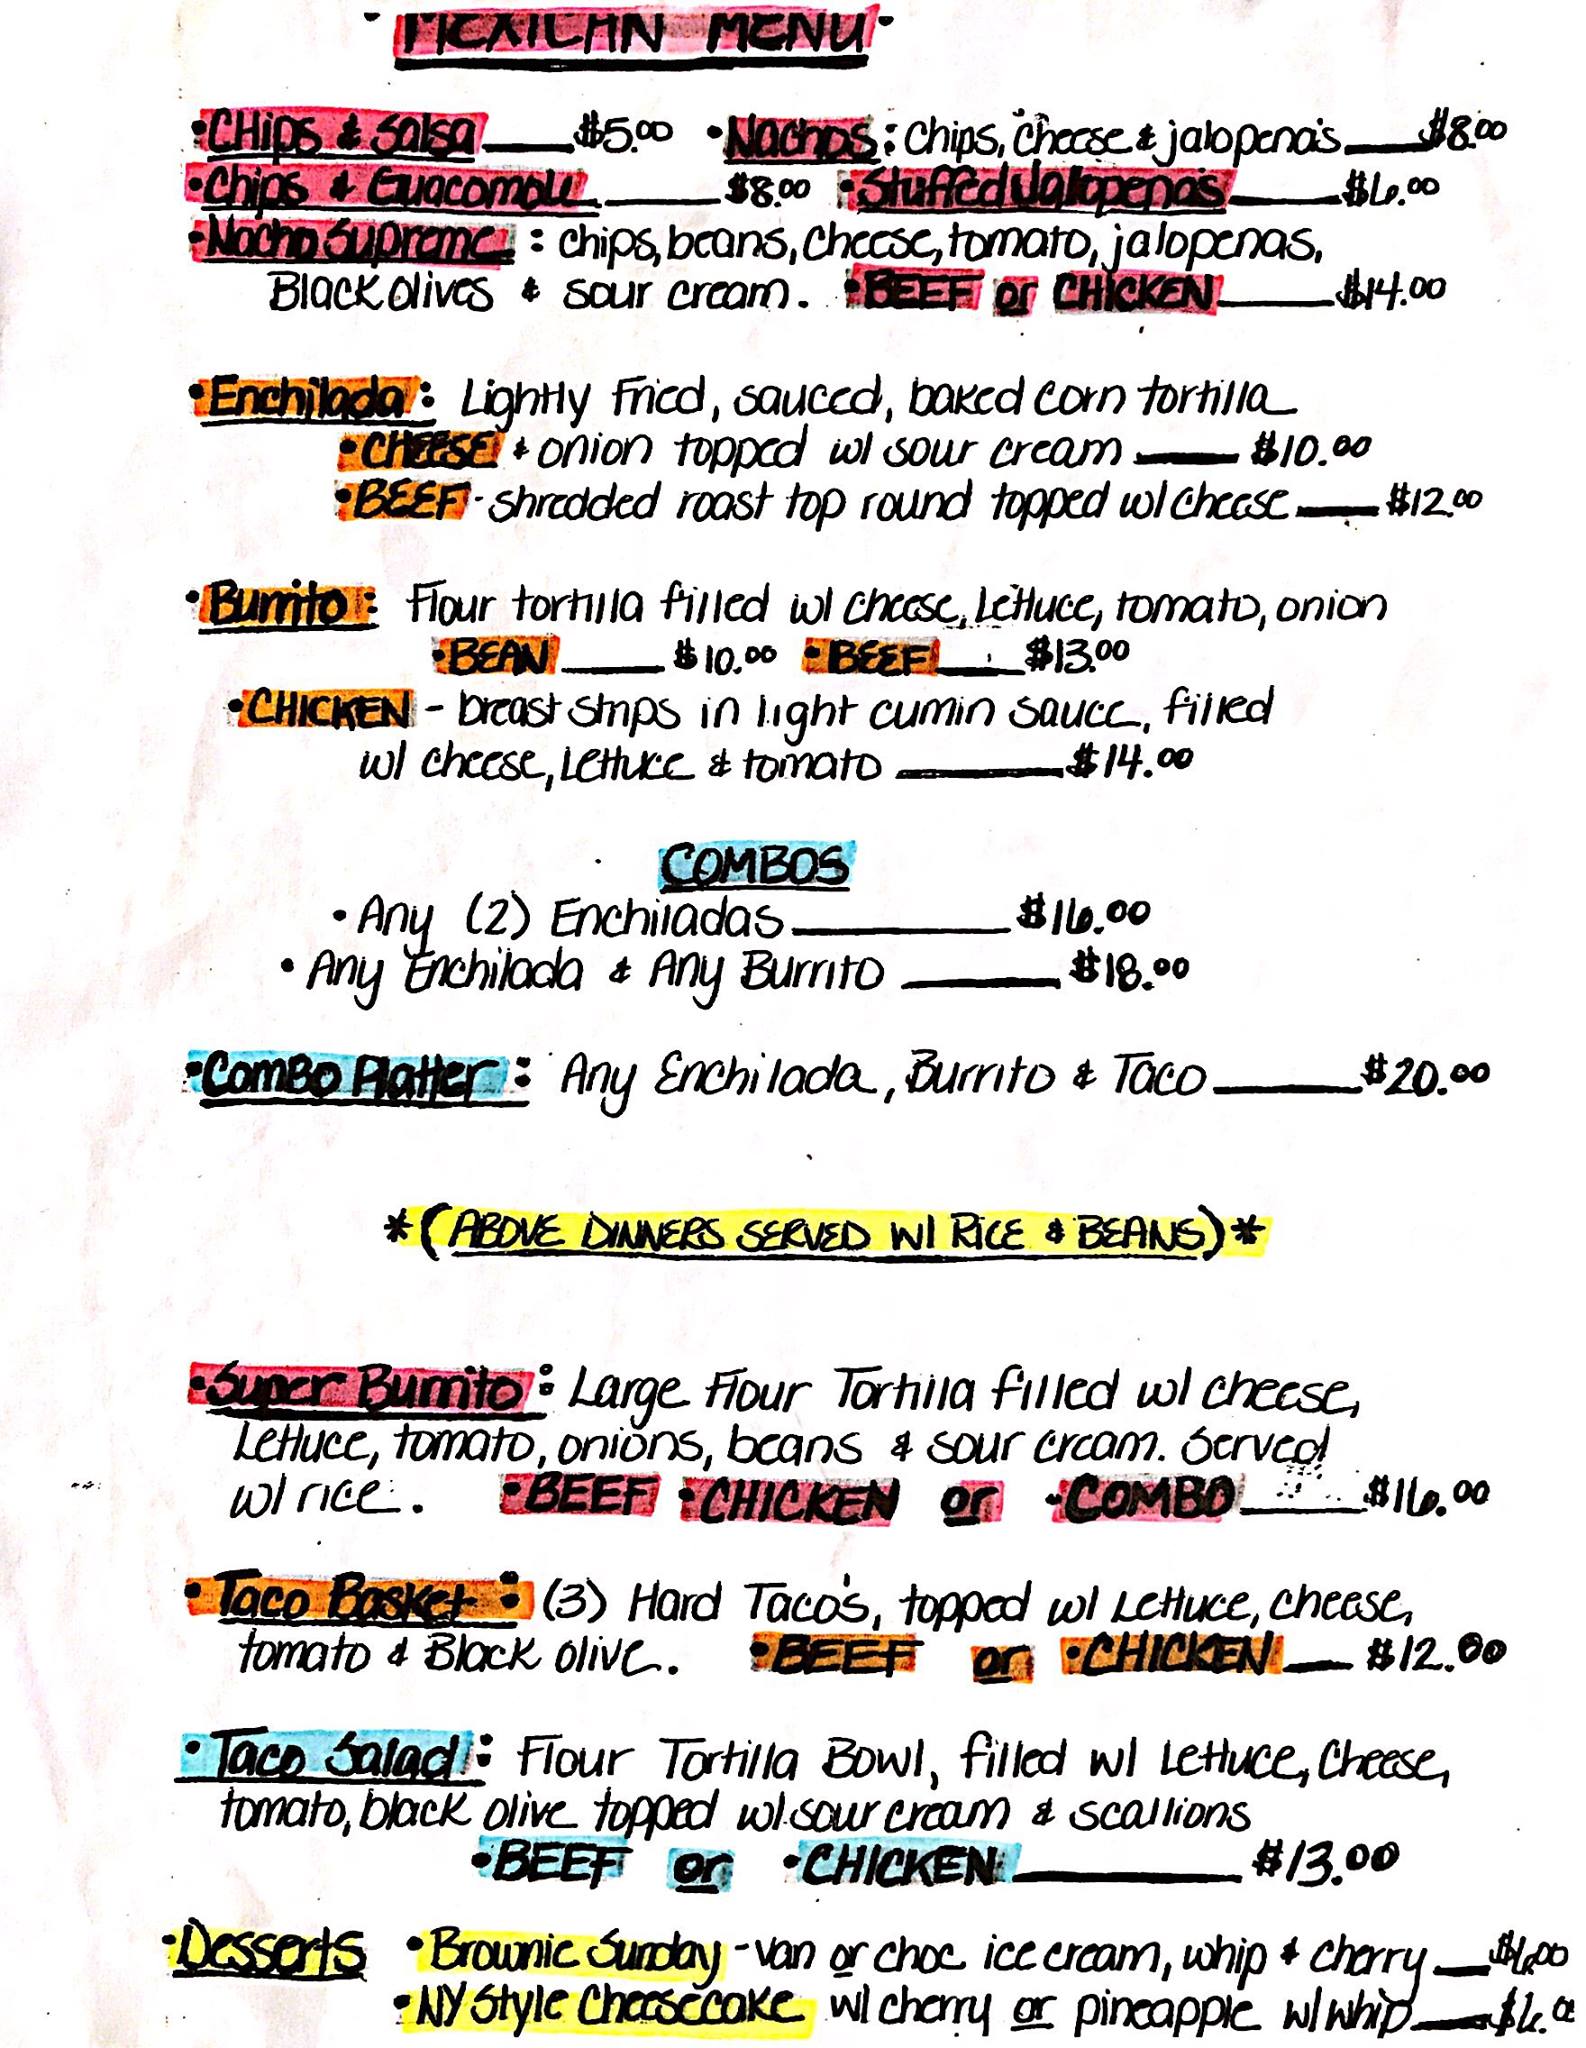 · MEXICAN MENU ·
·CHips & Salsa $5.00 ·Nachos: chips, cheese & jalopeno's $8.00
·Chips & Guacomole $8.00 ·Stuffed Jalopeno's $6.00
·Nacho Supreme: chips, beans, cheese, tomato, jalopenas,
Black olives & sour cream. ·BEEF or CHICKEN $14.00
·Enchilada: Lightly Fried, sauced, baked corn tortilla
·CHEESE & onion topped w/ sour cream $10.00
·BEEF - shredded roast top round topped w/ cheese $12.00
·Burrito: Flour tortilla filled w/ cheese, Lettuce, tomato, onion
·BEAN $10.00 ·BEEF $13.00
·CHICKEN - breast strips in light cumin sauce, filled
w/ cheese, Lettuce & tomato $14.00
COMBOS
·Any (2) Enchiladas $16.00
·Any Enchilada & Any Burrito $18.00
·Combo Platter: Any Enchilada, Burrito & Taco $20.00
*(ABOVE DINNERS SERVED W/ RICE & BEANS)*
·Super Burrito: Large Flour Tortilla filled w/ cheese,
Lettuce, tomato, onions, beans & sour cream. Served
w/ rice. ·BEEF ·CHICKEN or ·COMBO $16.00
·Taco Basket: (3) Hard Taco's, topped w/ Lettuce, cheese,
tomato & Black olive. ·BEEF or ·CHICKEN $12.00
·Taco Salad: Flour Tortilla Bowl, filled w/ Lettuce, Cheese,
tomato, black olive topped w/ sour cream & scallions
·BEEF or ·CHICKEN $13.00
·Desserts ·Brownie Sunday - van or choc ice cream, whip & cherry $6.00
·NY Style Cheesecake w/ cherry or pineapple w/ whip $6.00